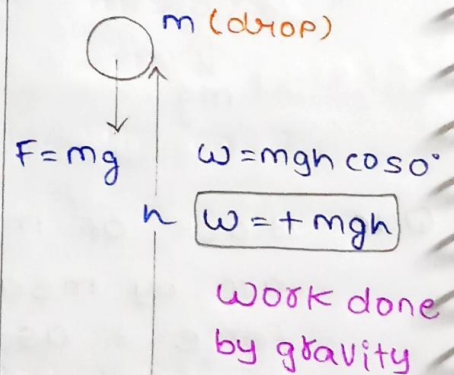 m (drop)
F = mg
W = mgh cos0°
h
W = + mgh
Work done
by gravity